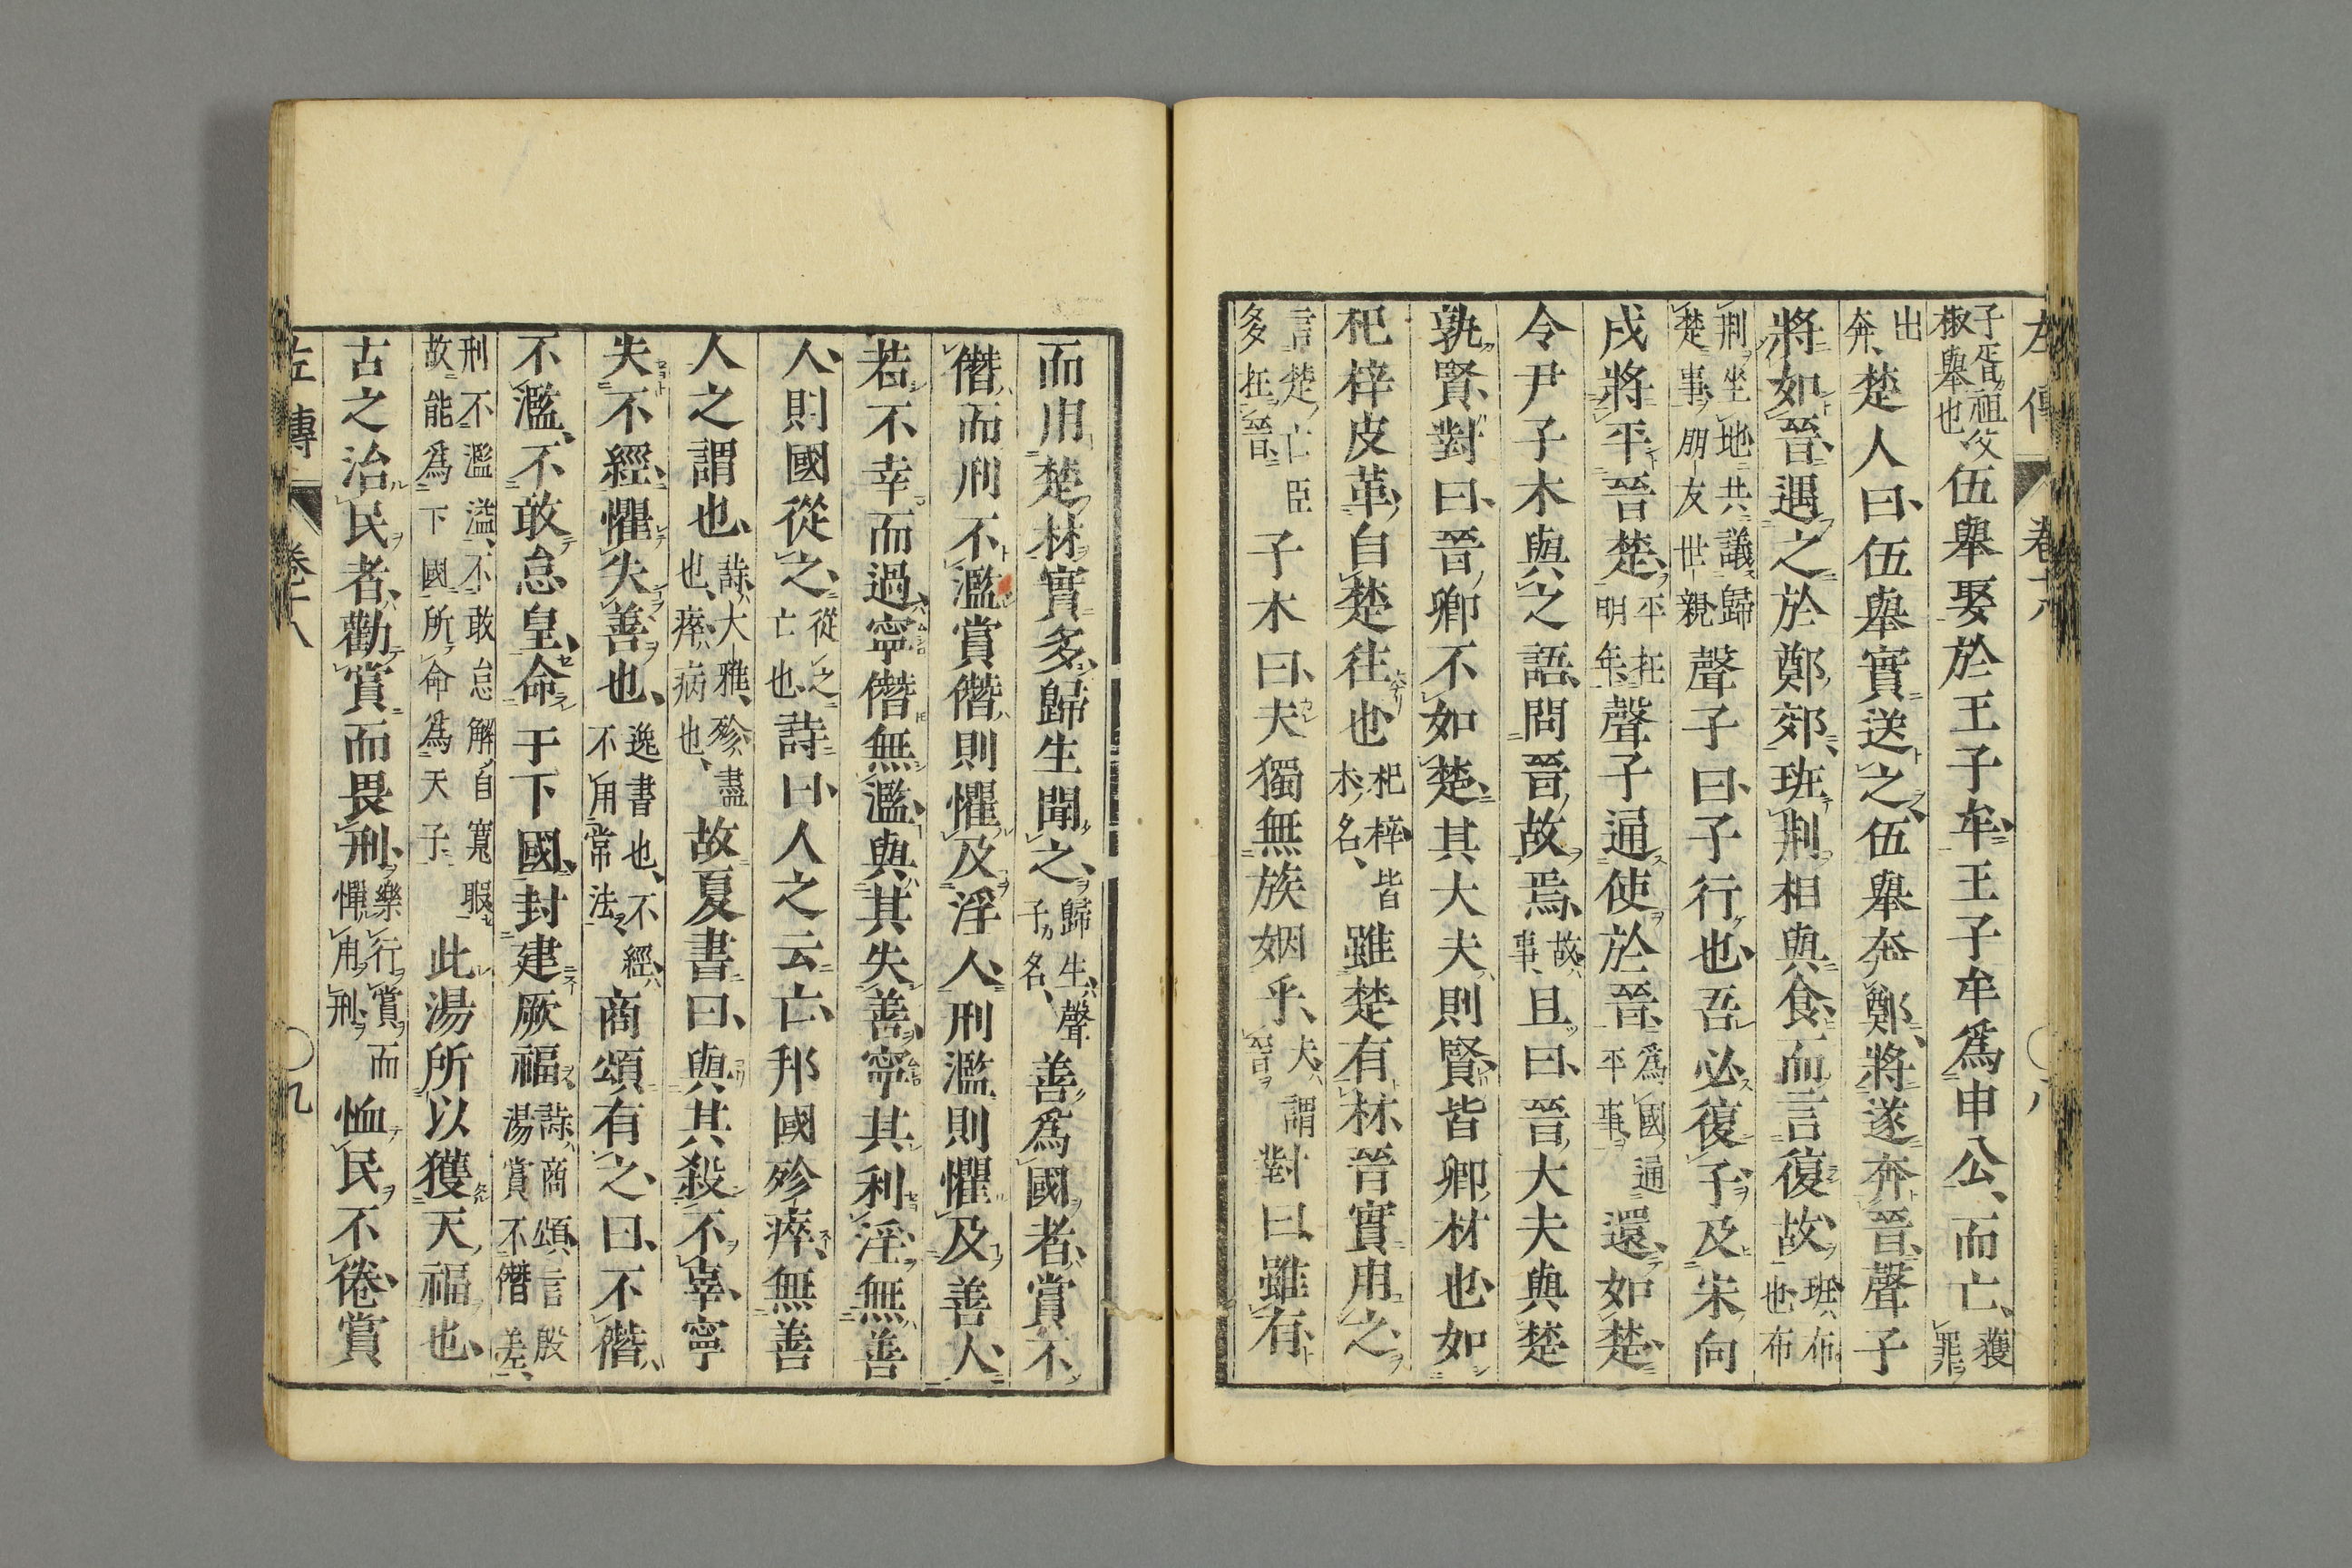 左傳 卷十八 ○八
子胥祖父椒舉也伍舉娶於王子牟、王子牟爲申公、而亡、獲罪
出奔、楚人曰、伍舉實送之、伍舉奔鄭、將遂奔晉、聲子
將如晉、遇之於鄭郊、班荆相與食、而言復故、班、布也、布
荆坐地、共議歸楚事、朋友世親聲子曰、子行也、吾必復子、及宋向
戌將平晉楚、平在明年、聲子通使於晉、爲國通平事、還如楚、
令尹子木與之語、問晉故焉、故、事、且曰、晉大夫與楚
孰賢、對曰、晉卿不如楚、其大夫則賢、皆卿材也、如
杞梓皮革、自楚往也、杞梓皆木名、雖楚有材、晉實用之、
言楚亡臣多在晉、子木曰、夫獨無族姻乎、夫、謂晉對曰、雖有、
而用楚材實多、歸生聞之、歸生、聲子名、善爲國者、賞不
僭而刑不濫、賞僭則懼及淫人、刑濫則懼及善人、
若不幸而過、寧僭無濫、與其失善、寧其利淫、無善
人、則國從之、從之亡也、詩曰、人之云亡、邦國殄瘁、無善
人之謂也、詩、大雅、殄、盡也、瘁、病也、故夏書曰、與其殺不辜、寧
失不經、懼失善也、逸書也、不經、不用常法、商頌有之、曰、不僭
不濫、不敢怠皇、命于下國、封建厥福、詩、商頌、言殷湯賞不僭差、
刑不濫溢、不敢怠解、自寬暇、故能爲下國所命爲天子此湯所以獲天福也、
古之治民者、勸賞而畏刑、樂行賞而憚用刑、恤民不倦、賞
左傳 卷十八 ○九